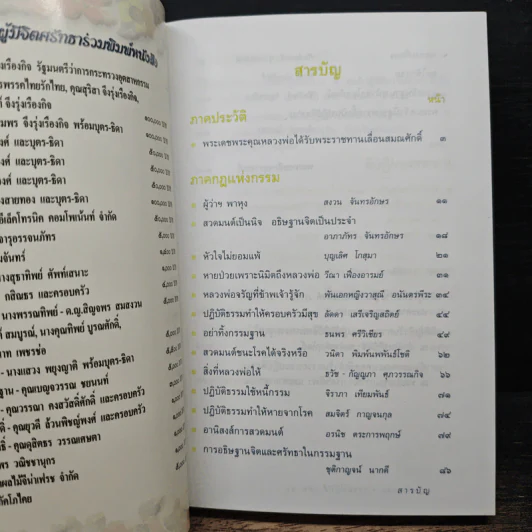 ผู้มีจิตศรัทธาร่วมพิมพ์หนังสือ
รุ่งเรืองกิจ รัฐมนตรีว่าการกระทรวงอุตสาหกรรม
พรรคไทยรักไทย, คุณสุริสา จึงรุ่งเรืองกิจ,
จึงรุ่งเรืองกิจ
พร จึงรุ่งเรืองกิจ พร้อมบุตร-ธิดา
และบุตร-ธิดา
และบุตร-ธิดา
และบุตร-ธิดา
สายทอง และบุตร-ธิดา
อีเล็คโทรนิค คอมโพเน้นท์ จำกัด
จารุอรรจนภัทร
จันทร์
นางสุธาทิพย์ ศัพท์เสนาะ
กสิณธร และครอบครัว
นางพรรณทิพย์ - ด.ญ.สิญจพร สมสงวน
สมบูรณ์, นางคุณทิพย์ บูรณศักดิ์,
เพชรช่อ
-นางแสวง พยุงญาติ พร้อมบุตร-ธิดา
- คุณเบญจวรรณ ชยนนท์
- คุณวรรณา คงสวัสดิศักดิ์ และครอบครัว
- คุณยุวดี ล้วนพิชญ์พงศ์ และครอบครัว
- คุณดุสิตธร วรรณเศษตา
พร วณิชชานุกร
ผลไม้จีน่าเฟรช จำกัด
ภัคโภไคย
สารบัญ
หน้า
ภาคประวัติ
พระเดชพระคุณหลวงพ่อได้รับพระราชทานเลื่อนสมณศักดิ์ ๓
ภาคกฎแห่งกรรม
ผู้ว่าฯ พาหุง สงวน จันทรอักษร ๑๑
สวดมนต์เป็นนิจ อธิษฐานจิตเป็นประจำ
อาภาภัทร จันทรอักษร ๑๘
หัวใจไม่ยอมแพ้ บุญเลิศ โกสุมา ๒๑
หายป่วยเพราะนิมิตถึงหลวงพ่อ วีณา เฟื่องอารมย์ ๓๑
หลวงพ่อจรัญที่ข้าพเจ้ารู้จัก พันเอกหญิงวาสุณี อนันตรพีระ ๓๔
ปฏิบัติธรรมทำให้ครอบครัวมีสุข ลัดดา เสรีเจริญสถิตย์ ๔๔
อย่าทิ้งกรรมฐาน ธนพร ศรีวิเชียร ๔๙
สวดมนต์ชนะโรคได้จริงหรือ วนิดา พิมพ์นพพันธ์โชติ ๖๒
สิ่งที่หลวงพ่อให้ ธวัช - กัญญภา ศุภวรรณกิจ ๖๖
ปฏิบัติธรรมใช้หนี้กรรม จิราภา เทียมพันธ์ ๗๑
ปฏิบัติธรรมทำให้หายจากโรค สมจัตร์ กาญจนกุล ๗๔
อานิสงส์การสวดมนต์ อรนิช ตระการพฤกษ์ ๗๙
การอธิษฐานจิตและศรัทธาในกรรมฐาน
ชุติกาญจน์ นากดี ๘๖
สารบัญ